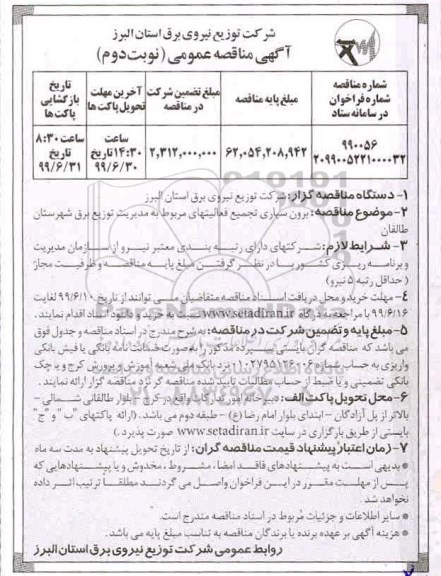 شرکت توزیع نیروی برق استان البرز
آگهی مناقصه عمومی (نوبت دوم)
شماره مناقصه شماره فراخوان در سامانه ستاد
مبلغ پایه مناقصه
مبلغ تضمین شرکت در مناقصه
آخرین مهلت تحویل پاکت ها
تاریخ بازگشایی پاکت ها
۹۹۰۰۵۶
۲۰۹۹۰۰۵۲۲۱۰۰۰۰۳۲
۶۲,۰۵۴,۲۰۸,۹۴۲
۲,۳۱۲,۰۰۰,۰۰۰
ساعت ۱۴:۳۰ تاریخ ۹۹/۶/۳۰
ساعت ۸:۳۰ تاریخ ۹۹/۶/۳۱
۱- دستگاه مناقصه گزار: شرکت توزیع نیروی برق استان البرز
۲- موضوع مناقصه: برون سپاری تجمیع فعالیتهای مربوط به مدیریت توزیع برق شهرستان
طالقان
۳- شرایط لازم: شرکتهای دارای رتبه بندی معتبر نیرو از سازمان مدیریت
و برنامه ریزی کشور با در نظر گرفتن مبلغ پایه مناقصه و ظرفیت مجاز
(حداقل رتبه ۵ نیرو)
۴- مهلت خرید و محل دریافت اسناد مناقصه متقاضیان می توانند از تاریخ ۹۹/۶/۱۰ لغایت
۹۹/۶/۱۶ با مراجعه به درگاه www.setadiran.ir نسبت به خرید و دانلود اسناد اقدام نمایند.
۵- مبلغ پایه و تضمین شرکت در مناقصه: به شرح مندرج در اسناد مناقصه و جدول فوق
می باشد که مناقصه گران بایستی سپرده مذکور را به صورت ضمانت نامه بانکی یا فیش بانکی
واریزی به حساب شماره نزد بانک ملی شعبه آموزش و پرورش کرج و یا چک
بانکی تضمینی و یا ضبط از حساب مطالبات تایید شده مناقصه گر نزد مناقصه گزار ارائه نمایند.
۶- محل تحویل پاکت الف: دبیرخانه امور تدارکات واقع در کرج - بلوار طالقانی شمالی -
بالاتر از پل آزادگان - ابتدای بلوار امام رضا (ع) - طبقه دوم می باشد. (ارائه پاکتهای "ب" و "ج"
بایستی از طریق بارگزاری در سایت www.setadiran.ir صورت پذیرد.)
۷- زمان اعتبار پیشنهاد قیمت مناقصه گران: از تاریخ تحویل پیشنهاد به مدت سه ماه
* بدیهی است به پیشنهادهای فاقد امضا، مشروط، مخدوش و یا پیشنهادهایی که
پس از مهلت مقرر در این فراخوان واصل می گردند مطلقا ترتیب اثر داده
نخواهد شد.
* سایر اطلاعات و جزئیات مربوط در اسناد مناقصه مندرج است.
* هزینه آگهی بر عهده برنده یا برندگان مناقصه به تناسب مبلغ پایه می باشد.
روابط عمومی شرکت توزیع نیروی برق استان البرز